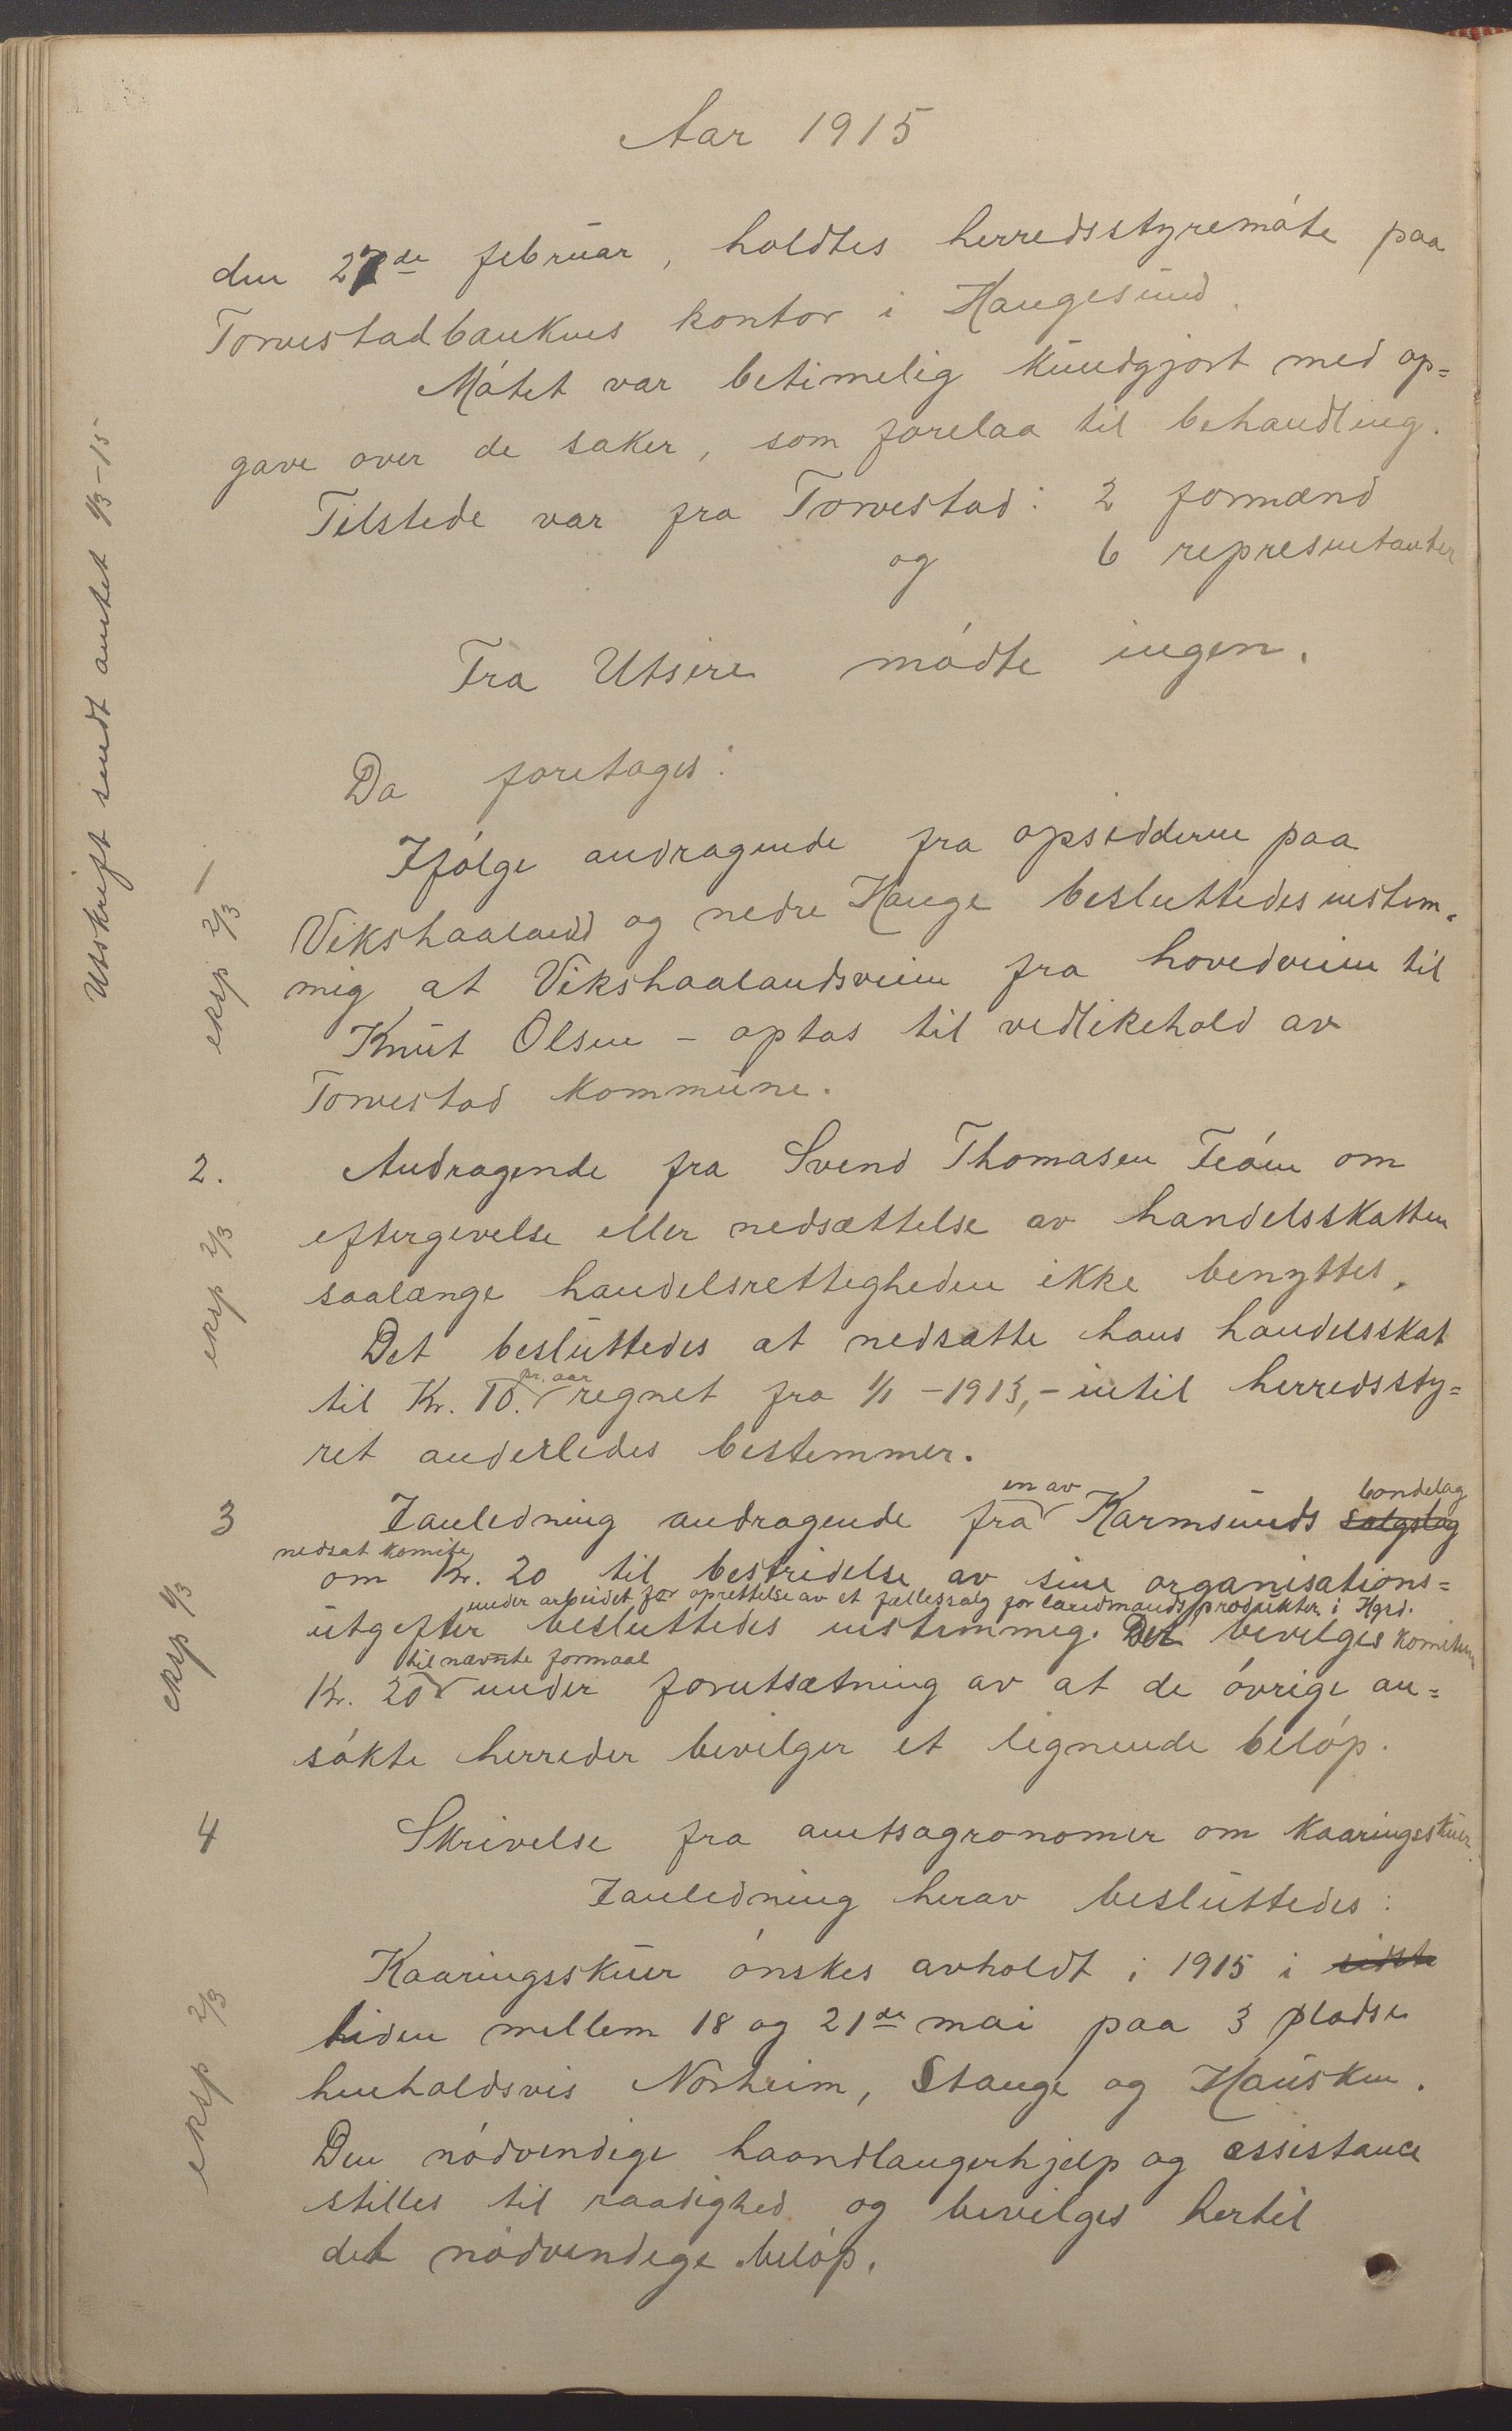 Aar 1915
den 27de februar, holdtes herredsstyremóte paa
Torvestadbankens kontor i Haugesund.
Mótet var betimelig kundgjort med op=
gave over de saker, som forelaa til behandling.
Tilstede var fra Torvestad: 2 formænd
og 6 representanter
Fra Utsire módte ingen.
Utskrift sendt amtet 8/3-15
Da foretoges:
1
Ifólge andragende fra opsidderne paa
Vikshaaland og nedre Hauge besluttedes enstem=
mig at Vikshaalandsveien fra hovedveien til
Knut Olsen – optas til vedlikehold av
Torvestad kommune.
eksp 2/3
2. Andragende fra Svend Thomasen Feóen om
eftergivelse eller nedsættelse av handelsskatten
saalænge handelsrettigheden ikke benyttes.
Det besluttedes at nedsætte hans handelsskat
til Kr. 10. pr. aar regnet fra 1/1 – 1913, – intil herredssty=
ret anderledes bestemmer.
eksp 2/3
3 Ianledning andragende fra en av Karmsunds salgslag bondelag
nedsat komite
om Kr. 20 til bestridelse av sine organisations=
under arbeidet for oprettelse av et fællessalg for landmandsprodukter i Hgsd.
utgifter besluttedes enstemmig. Det bevilges komiteen
til nævnte formaal
Kr. 20 under forutsætning av at de óvrige an=
sókte herreder bevilger et lignende belóp.
eksp 8/3
4 Skrivelse fra amtsagronomen om kaaringsskuer.
Ianledning herav besluttedes:
Kaaringsskuer ónskes avholdt i 1915 i sidste
tiden mellem 18 og 21de mai paa 3 pladse
henholdsvis Norheim, Stange og Hausken.
Den nódvendige haandlangerhjelp og assistance
stilles til raadighed og bevilges hertil
det nódvendige belóp.
eksp 2/3